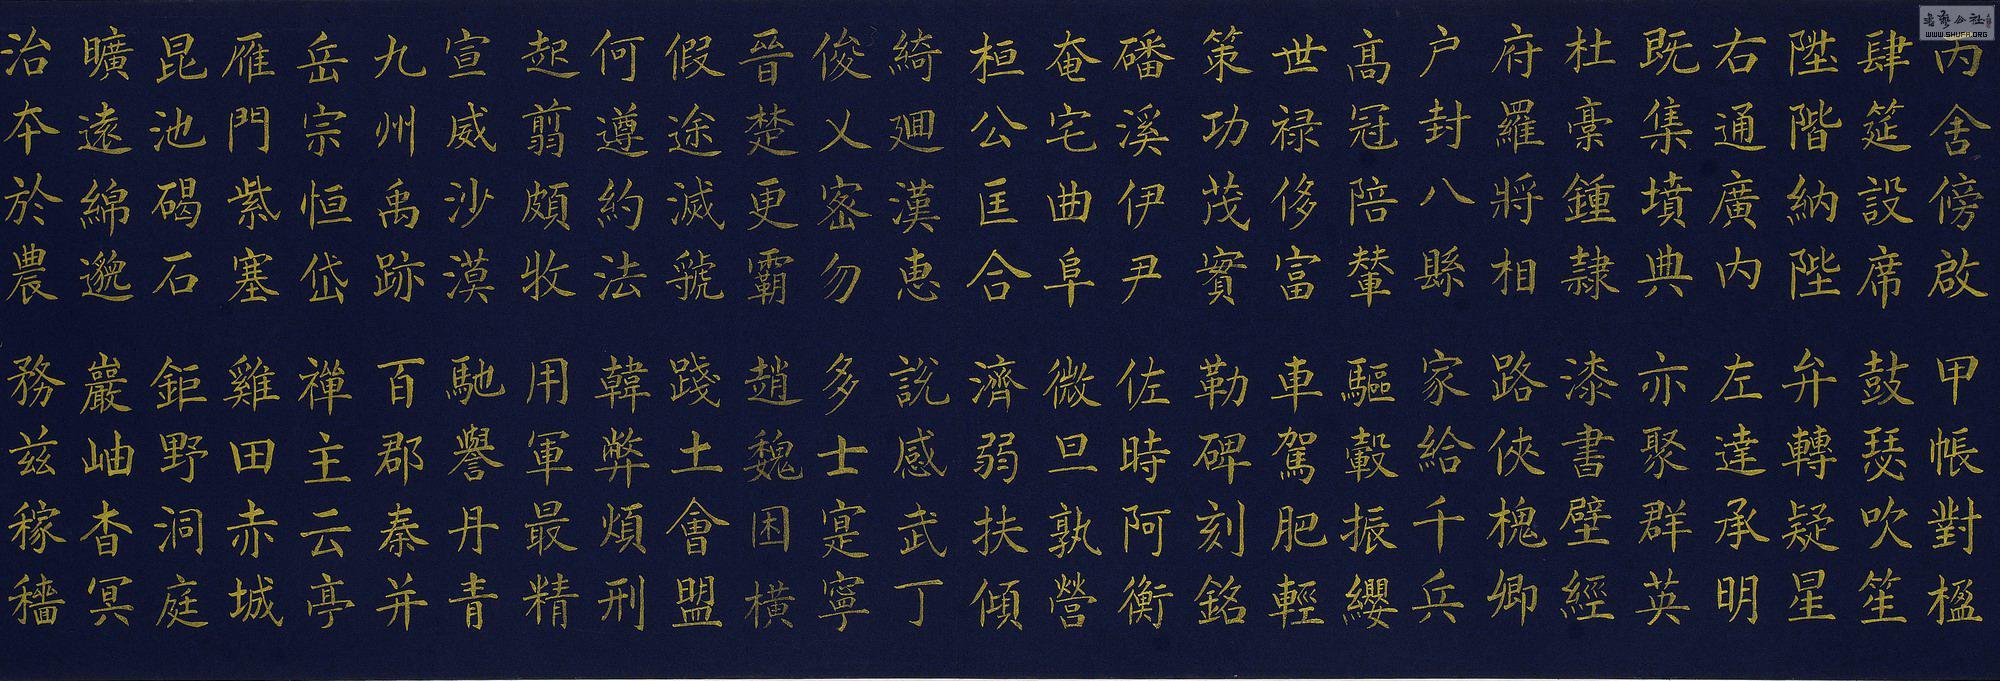 丙舍傍啟甲帳對楹
肆筵設席鼓瑟吹笙
陞階納陛弁轉疑星
右通廣內左達承明
既集墳典亦聚群英
杜稾鍾隸漆書壁經
府羅將相路俠槐卿
户封八縣家給千兵
高冠陪輦驅轂振纓
世禄侈富車駕肥輕
策功茂實勒碑刻銘
磻溪伊尹佐時阿衡
奄宅曲阜微旦孰營
桓公匡合濟弱扶傾
綺迴漢惠説感武丁
俊乂密勿多士寔寧
晉楚更霸趙魏困橫
假途滅虢踐土會盟
何遵約法韓弊煩刑
起翦頗牧用軍最精
宣威沙漠馳譽丹青
九州禹跡百郡秦并
岳宗恒岱禪主云亭
雁門紫塞雞田赤城
昆池碣石鉅野洞庭
曠遠綿邈巖岫杳冥
治本於農務兹稼穡
書藝公社
WWW.SHUFA.ORG